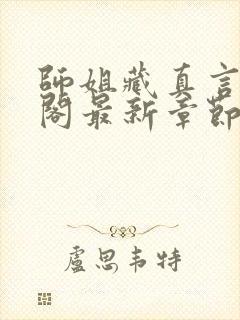 師姐藏真言
閣最新章節
盧思韦特